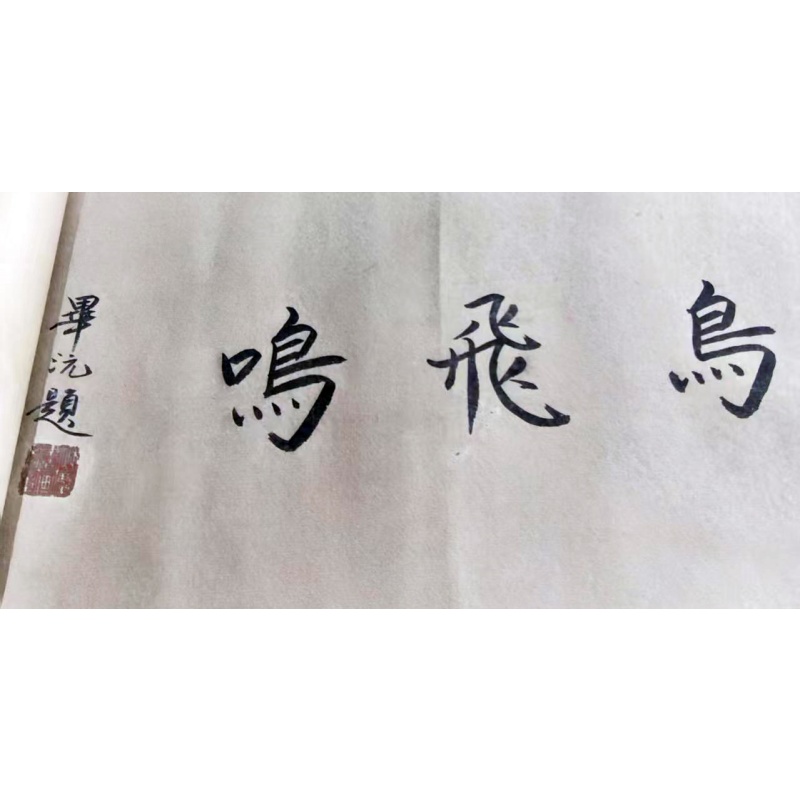 鳥飛鳴
畢沅題